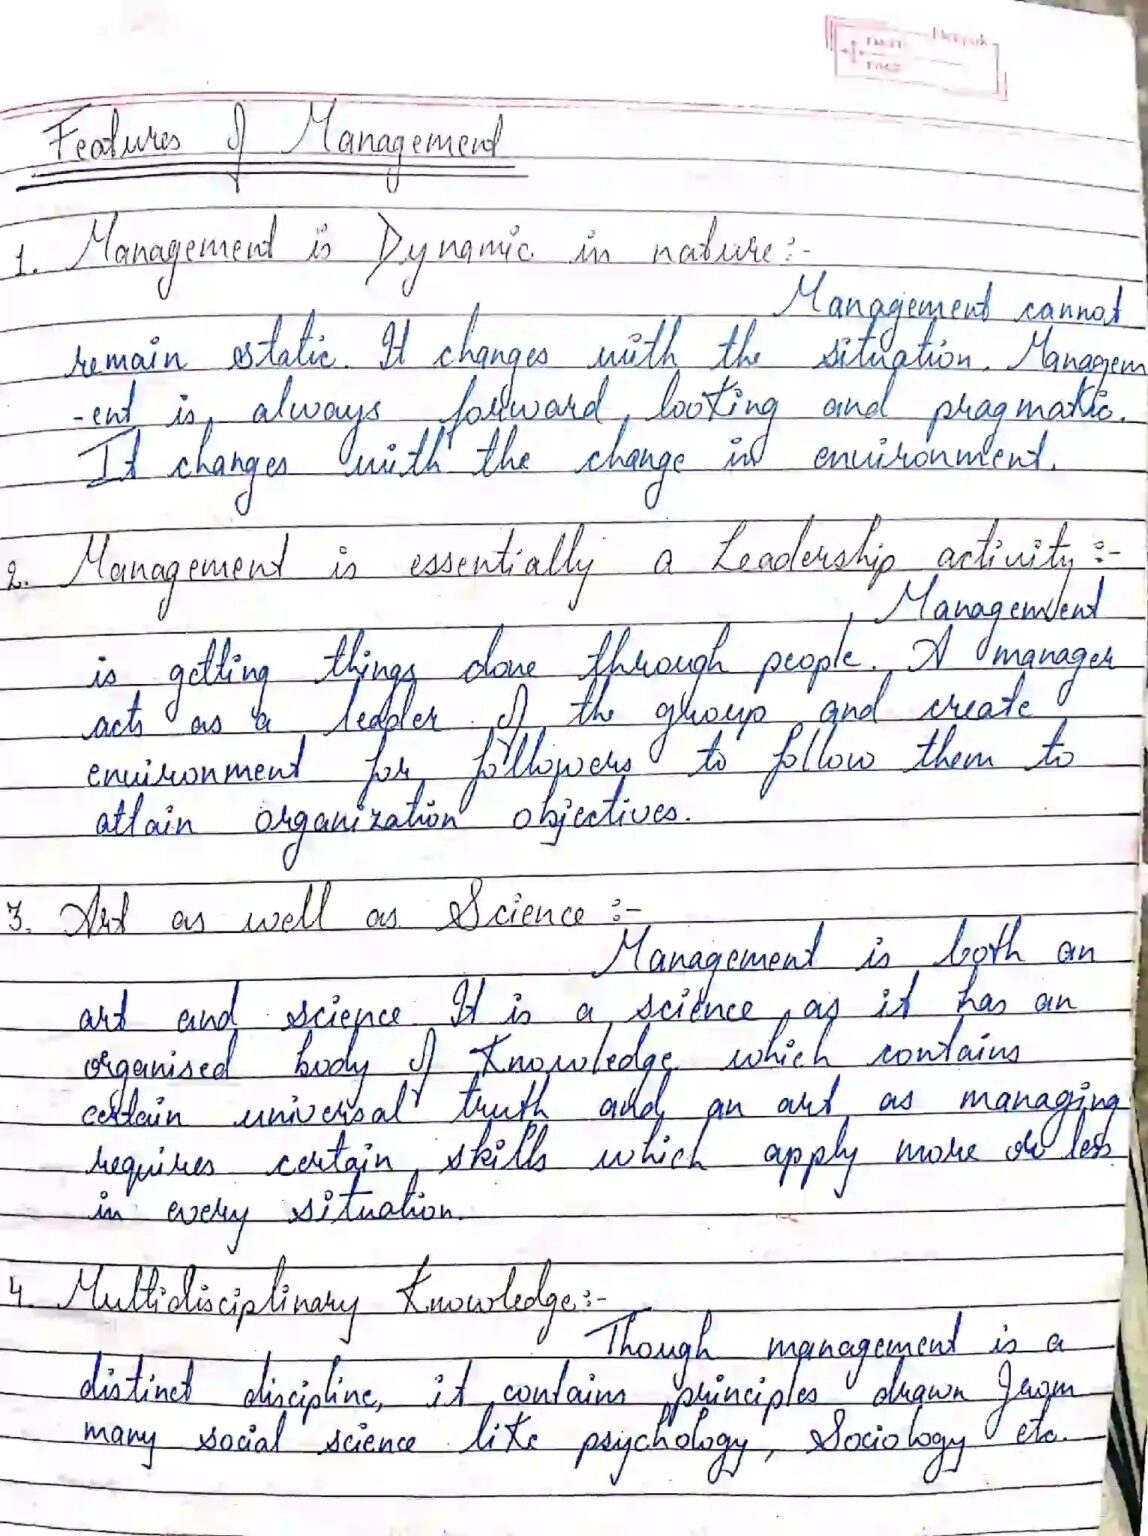 Deepak
DATE:
PAGE
Features of Management
1. Management is Dynamic in nature:-
Management cannot
remain static. It changes with the situation. Managem
-ent is always forward looking and pragmatic.
It changes with the change in environment.
2. Management is essentially a Leadership activity:-
Management
is getting things done through people. A manager
acts as a leader of the group and create
environment for followers to follow them to
attain organization objectives.
3. Art as well as Science :-
Management is both an
art and science It is a science as it has an
organised body of Knowledge which contains
certain universal truth and an art as managing
requires certain skills which apply more or less
in every situation.
4. Multidisciplinary Knowledge:-
Though management is a
distinct discipline, it contains principles drawn from
many social science like psychology, Sociology etc.